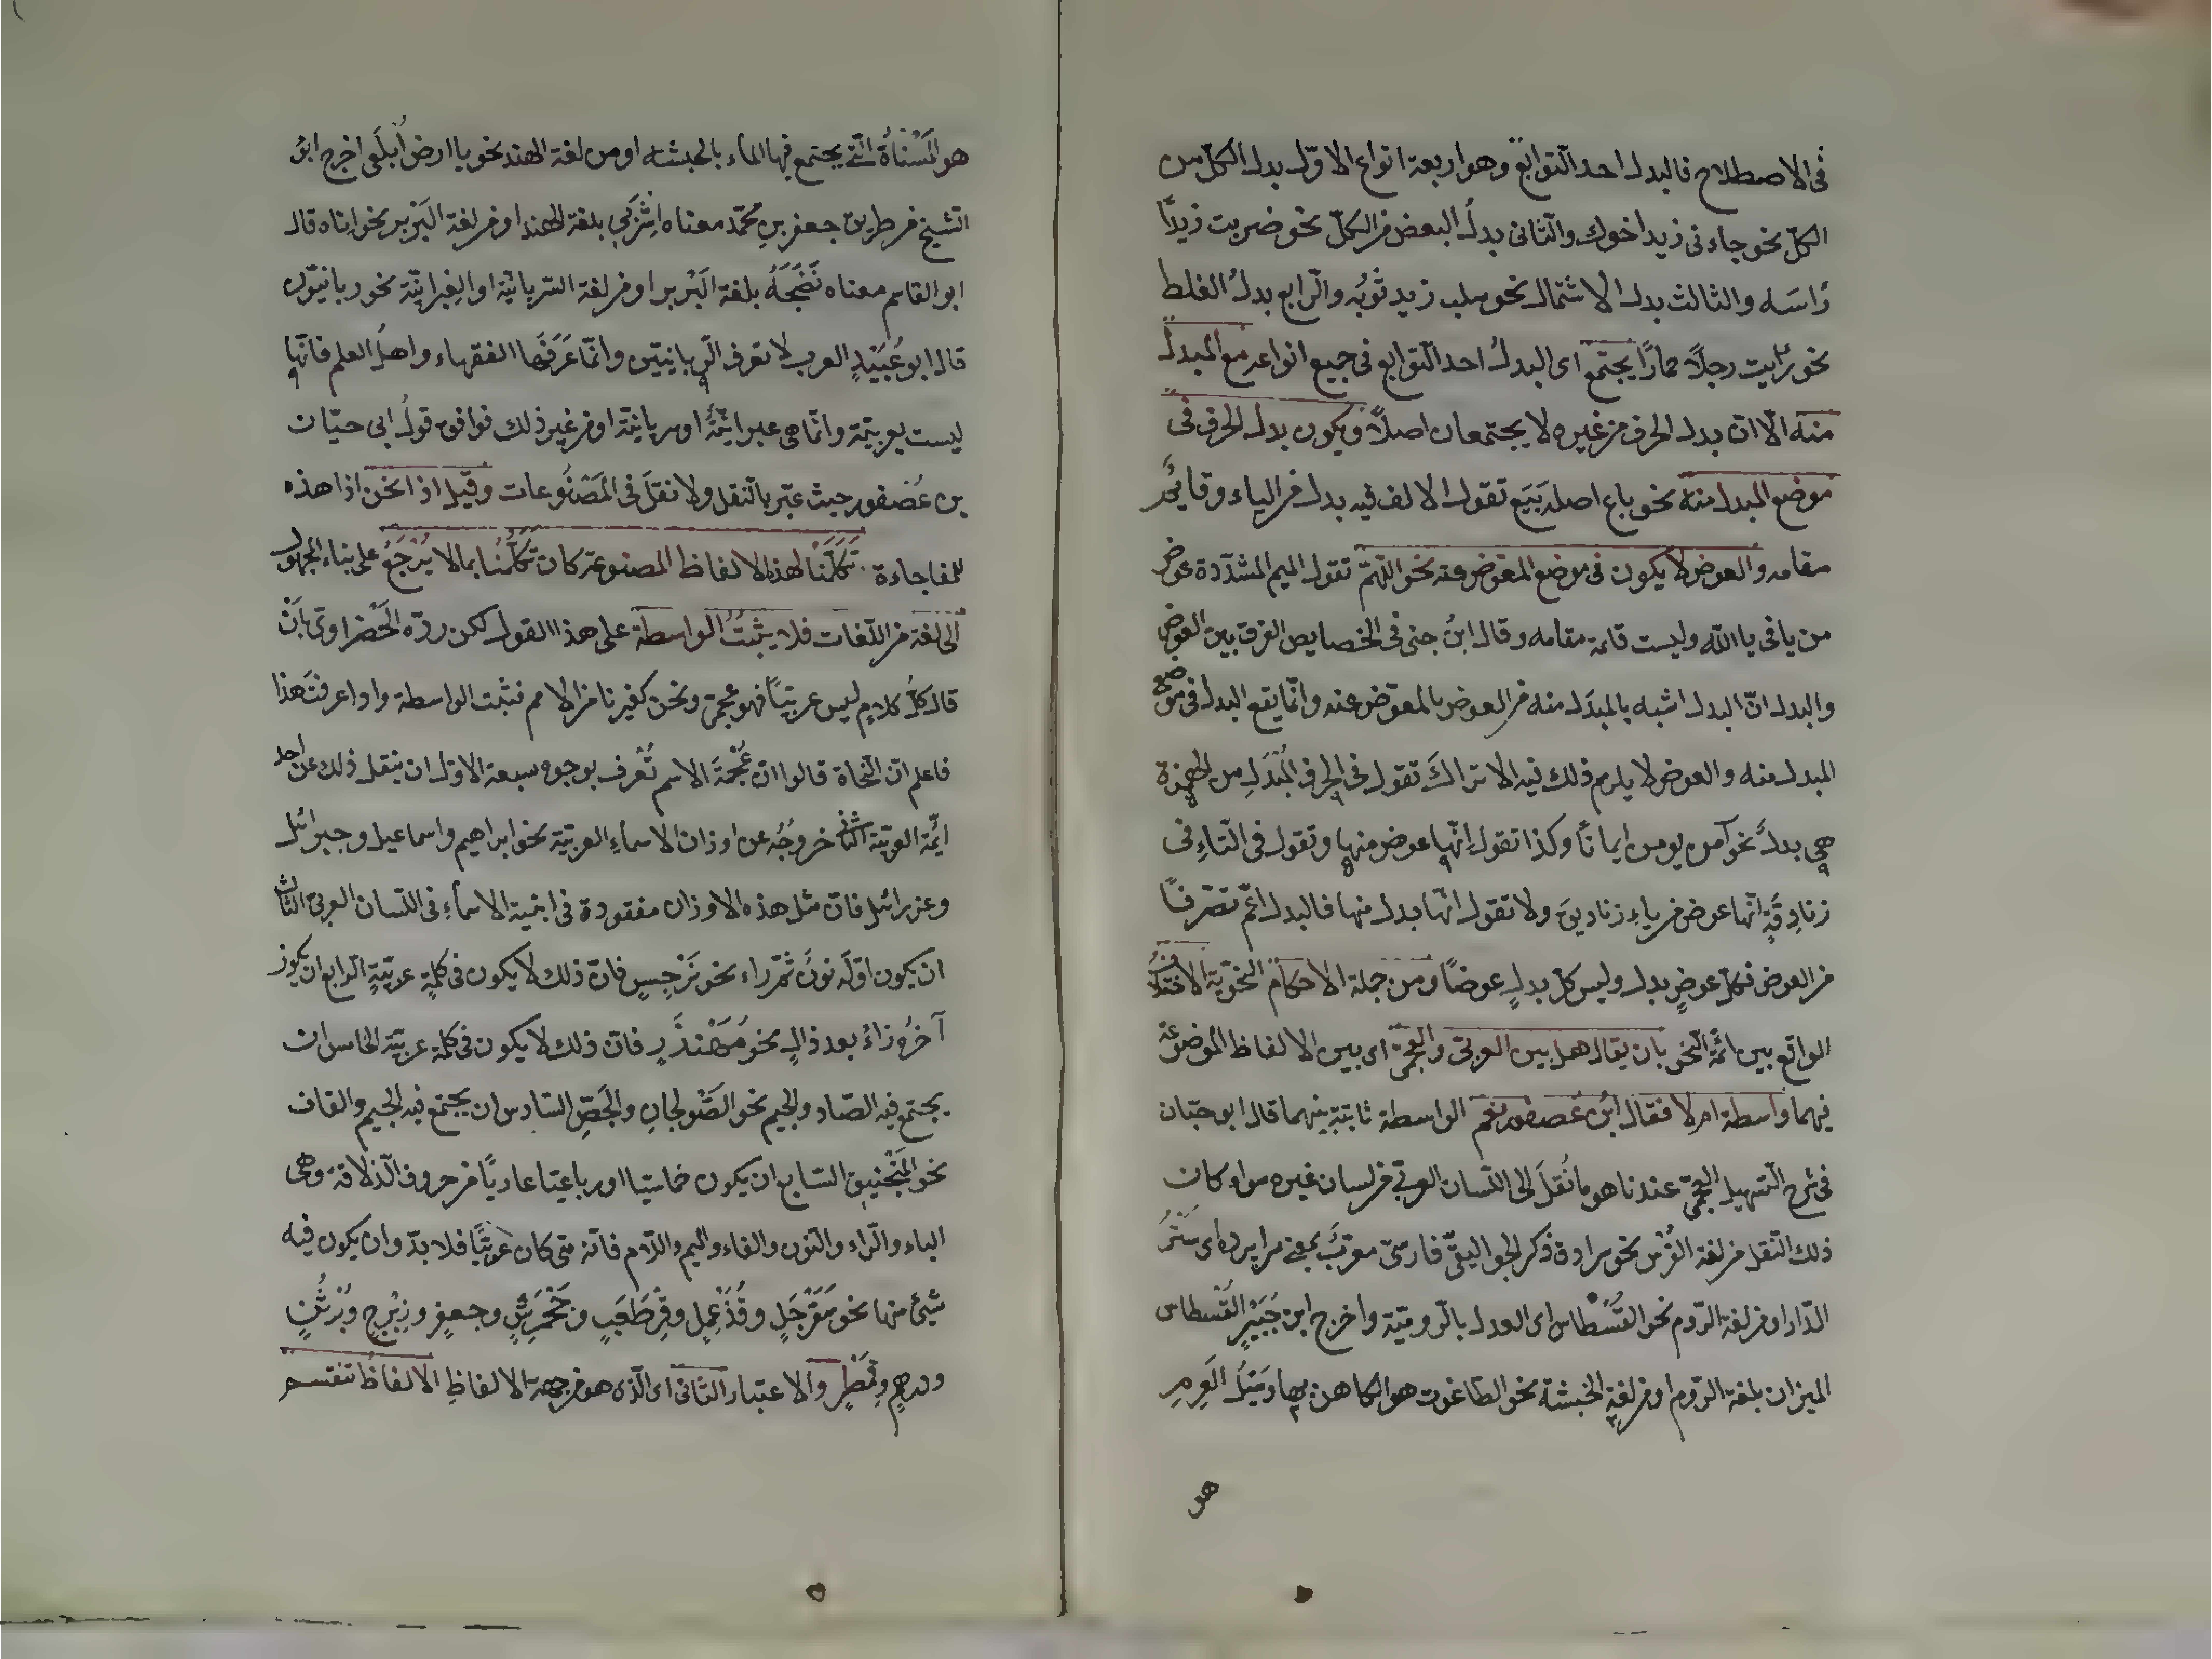 فى الاصطلاح فالبدل احد التوابع وهو اربعة انواع الاوّل بدل الكلّ من
الكلّ نحو جاءنى زيد اخوك والثانى بدلُ البعض من الكلّ نحو ضربت زيدًا
رأسَه والثالث بدل الاشتمال نحو سلب زيد ثوبُه والرابع بدلُ الغلط
نحو رأيت رجلًا حمارًا يجتمع اى البدلُ احد التوابع فى جميع انواعه مع المبدل
منه الّا انّ بدل الحرف من غيره لا يجتمعان اصلًا ويكون بدل الحرف فى
موضع المبدل منه نحو باع اصله بَيَع تقول الالف فيه بدل من الياء وقائم
مقامه والعوض لا يكون فى موضع المعوّض عنه نحو اللهمّ تقول الميم المشدّدة عوض
من يا فى يا اللّه وليست قائمة مقامه وقال ابنُ جنى فى الخصايص الفرق بين العوض
والبدل انّ البدل اشبه بالمبدَل منه من العوض بالمعوّض عنه وانّما يقع البدل فى موضع
المبدل منه والعوض لا يلزم ذلك فيه الا تراكَ تقول فى الحرف المُبْدَلِ من الهمزة
هى بدلٌ نحو آمن يومن ايمانًا وكذا تقول انّها عوض منها وتقول فى التاءِ فى
زنادِقَةٍ انّها عوض من ياءِ زناديقَ ولا تقول انّها بدل منها فالبدل اعمّ تصرّفًا
من العوض فكلّ عوضٍ بدل وليس كلّ بدلٍ عوضًا ومن جملة الاحكام النحويّة الاختلافُ
الواقع بين ائمّة النحو بان يقال هل بين العربى والعجمىّ اى بين الالفاظ الموضوعة
فيهما واسطة ام لا فقال ابن عصفور نعم الواسطة ثابتة بينهما قال ابو حيّان
فى شرح التسهيل العجمىّ عندنا هو ما نُقلَ الى اللسان العربىّ من لسان غيره سواء كان
ذلك النقل من لغة الفُرْس نحو سرادق ذكر الجواليقىّ فارسىّ معرّبٌ بمعنى سرايرده اى سَتْرُ
الدّار او من لغة الرّوم نحو القُسْطاس اى العدل بالرّوميّة واخرج ابن جُبَيْرٍ القُسْطاس
الميزان بلغة الرّوم او من لغةِ الحَبشة نحو الطاغوت هو الكاهن بها وسَيْلَ العَرِمِ
هو
هو المُسْنَاةُ الّتى يجتمع فيها الماء بالحبشه او من لغة الهند نحو يا ارض اُبلَعى اخرج ابوُ
الشيخ من طريق جعفر بنِ محمّد معناه اِشْرَبِى بلغة الهند او من لغة البَرْبر نحو اناه قال
ابو القاسم معناه نَضَجَهُ بلغة البَرْبر او من لغة السّريانيّة او العِبرانيّة نحو ربانيّون
قال ابو عُبَيْدٍ العرب لا تعرف الرّبانيّين وانّما عَرَفَها الفقهاء واهلُ العلم فانّها
ليست بعربيّة وانّما هى عبرانيّةٌ او سريانيّة او من غير ذلك فوافق قولُ ابى حيّان
بن عُصْفور حيث عبّر بالنقل ولا نقلَ فى المَصْنُوعات وقيل اذا نحن اذا هذه
للمفاجاءة تكَلَّمْنا لهذه الالفاظ المصنوعة كان تَكَلُّمُنا بما لا يُرْجَعُ على بناء المجهول
الى لغة من اللّغات فلا يثبتُ الواسطة على هذا القول لكن ردّه الخَضْراوىّ بانْ
قال كلّ كلامٍ ليس عربيّاً فهو عجمىّ ونحن كغيرنا من الامم نثبت الواسطة واذا عرفت هذا
فاعلم انّ النّحاة قالوا ان عُجْمَةَ الاسم تُعْرف بوجوه سبعة الاول ان ينقل ذلك عن احد
ايمّة العربيّة الثانى خروجُه عن اوزان الاسماءِ العربيّة نحو ابراهيم واسماعيل وجبرائل
وعزرائل فان مثل هذه الاوزان مفقودة فى ابنية الاسماءِ فى اللسان العربىّ الثالث
ان يكون اوّلَه نونٌ ثمّ راء نحو نَرْجِسٍ فانّ ذلك لا يكون فى كلمةٍ عربيّةٍ الرابع ان يكون
آخرُه زاءٌ بعد دالٍ نحو مُهَنْدَزٍ فانّ ذلك لا يكون فى كلمة عربيّة الخامس ان
يجتمع فيه الصّاد والجيم نحو الصَّوْلجانِ والجَصِّ السّادس ان يجتمع فيه الجيم والقاف
نحو المَنْجَنيق السّابع ان يكون خماسيّا او رباعيّا عاريًا من حروف الذلاقة وهى
الباء والرّاء والنون والفاء والميم واللّام فانّه متى كان عربيًّا فلا بدّ وان يكون فيه
شيئ منها نحو سَفَرْجَلٍ وقُذَعْمِلٍ وقِرْطَعْبٍ وجَحْمَرِشٍ وجعفرٍ وزِبْرِجٍ وبُرْثُنٍ
ودرهمٍ وقِمَطْرٍ والاعتبار الثانى اى الّذى هو من جهة الالفاظِ الالفاظُ تنقسم